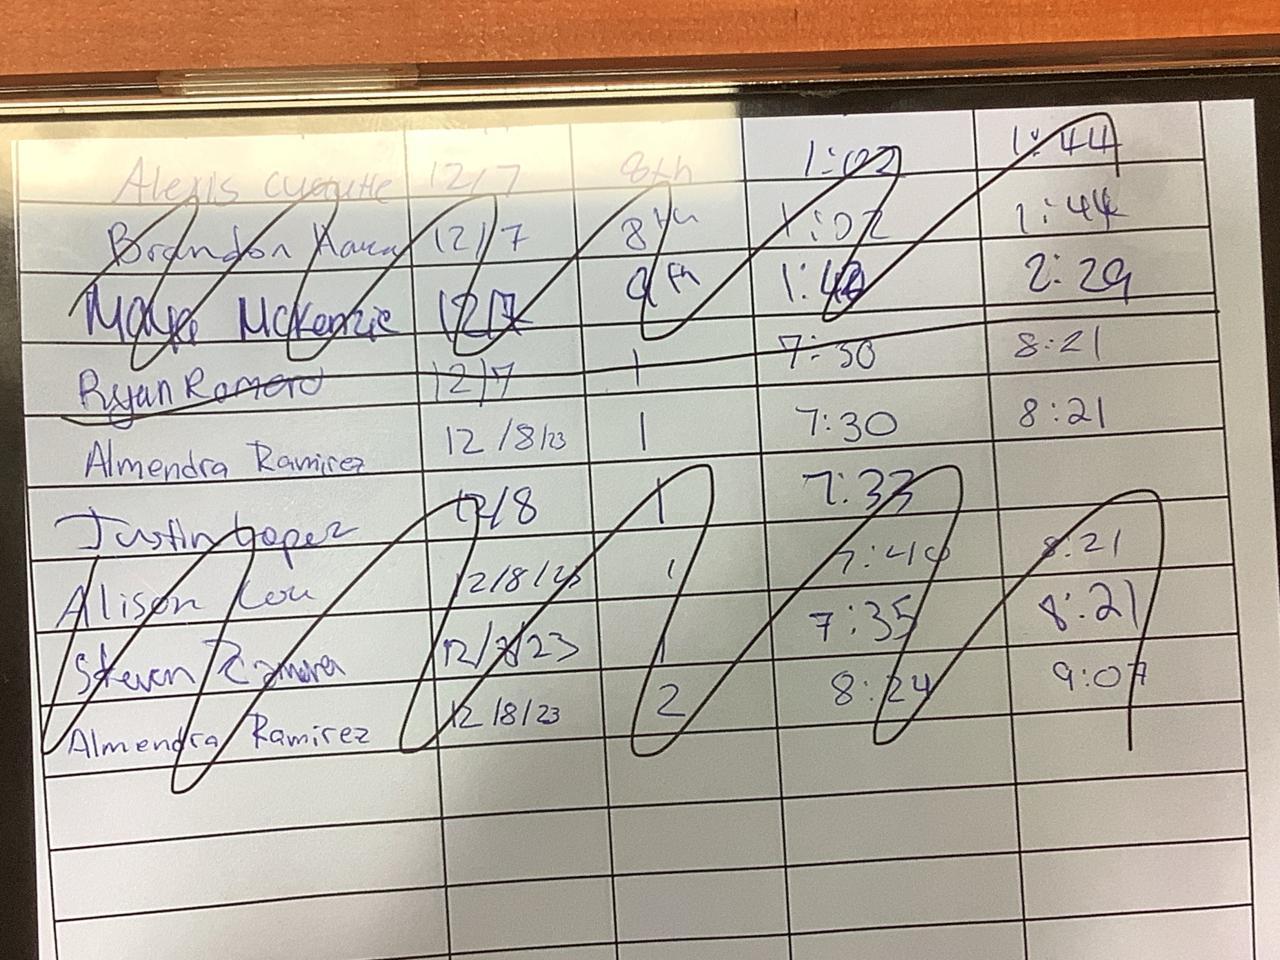 Alexis 12/7 8th 1:02 1:44
Brandon 12/7 8th 1:02 1:44
McKenzie 12/7 9th 1:46 2:29
Ryan Romero 12/7 1 7:30 8:21
Almendra Ramirez 12/8/23 1 7:30 8:21
Justin Lopez 12/8 1 7:33
Alison 12/8/23 1 7:40 8:21
Steven Zamora 12/8/23 1 7:35 8:21
Almendra Ramirez 12/8/23 2 8:24 9:07